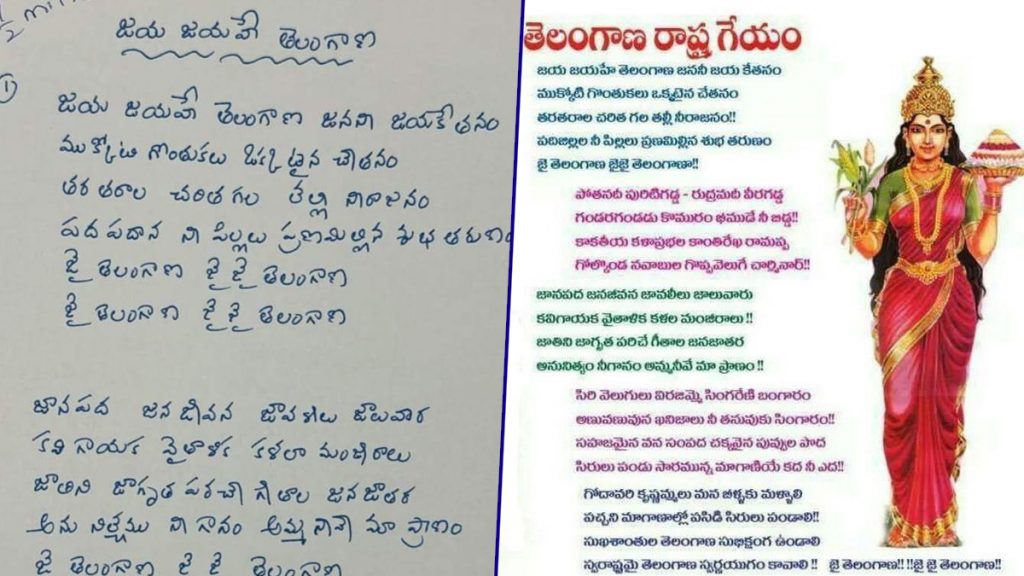 జయ జయహే తెలంగాణ
①
జయ జయహే తెలంగాణ జనని జయకేతనం
ముక్కోటి గొంతుకలు ఒక్కటైన చేతనం
తర తరాల చరిత గల తల్లి నీరాజనం
పద పదాన నీ పిల్లలు ప్రణమిల్లిన శుభ తరుణం
జై తెలంగాణ జై జై తెలంగాణ
జై తెలంగాణ జై జై తెలంగాణ
జానపద జన జీవన జావళీలు జాలువార
కవి గాయక వైతాళిక కళలా మంజీరాలు
జాతిని జాగృత పరచే గీతాల జన జాతర
అను నిత్యము నీ గానం అమ్మ నీవే మా ప్రాణం
జై తెలంగాణ జై జై తెలంగాణ
తెలంగాణ రాష్ట్ర గేయం
జయ జయహే తెలంగాణ జననీ జయ కేతనం
ముక్కోటి గొంతుకలు ఒక్కటైన చేతనం
తరతరాల చరిత గల తల్లీ నీరాజనం!!
పదిజిల్లల నీ పిల్లలు ప్రణమిల్లిన శుభ తరుణం
జై తెలంగాణ జైజై తెలంగాణా!!
పోతనదీ పురిటిగడ్డ - రుద్రమదీ వీరగడ్డ
గండరగండడు కొమురం భీముడే నీ బిడ్డ!!
కాకతీయ కళాప్రభల కాంతిరేఖ రామప్ప
గోల్కొండ నవాబుల గొప్పవెలుగే చార్మినార్!!
జానపద జనజీవన జావలీలు జాలువారు
కవిగాయక వైతాళిక కళల మంజీరాలు !!
జాతిని జాగృత పరిచే గీతాల జనజాతర
అనునిత్యం నీగానం అమ్మనీవే మా ప్రాణం !!
సిరి వెలుగులు విరజిమ్మె సింగరేణి బంగారం
అణువణువున ఖనిజాలు నీ తనువుకు సింగారం!!
సహజమైన వన సంపద చక్కనైన పువ్వుల పొద
సిరులు పండు సారమున్న మాగాణియే కద నీ ఎద!!
గోదావరి కృష్ణమ్మలు మన బీళ్ళకు మళ్ళాలి
పచ్చని మాగాణాల్లో పసిడి సిరులు పండాలి!!
సుఖశాంతుల తెలంగాణ సుభిక్షంగ ఉండాలి
స్వరాష్ట్రమై తెలంగాణ స్వర్ణయుగం కావాలి !! జై తెలంగాణ!! !!జై జై తెలంగాణ!!